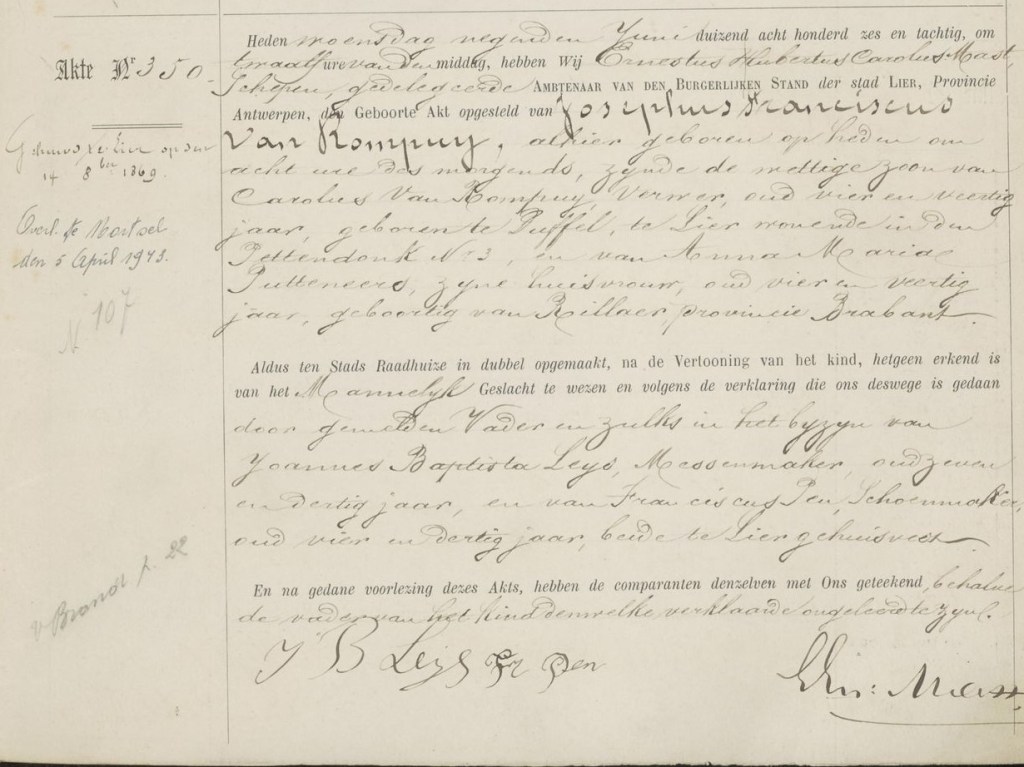 Akte Nr 350.
Gehuwd te Lier op den
14 8ber 1869.
Overl. te Mortsel
den 5 April 1973.
N 107
v Brandt p. 22
Heden woensdag negenden Juni duizend acht honderd zes en tachtig, om
twaalf ure van den middag, hebben Wij Ernestus Hubertus Carolus Mast,
Schepen, gedelegeerde Ambtenaar van den Burgerlijken Stand der stad Lier, Provincie
Antwerpen, den Geboorte Akt opgesteld van Josephus Franciscus
Van Rompuy, alhier geboren op heden om
acht ure des morgends, zynde de wettige zoon van
Carolus Van Rompuy, Verwer, oud vier en veertig
jaar, geboren te Duffel, te Lier wonende in den
Pettendonk No 3, en van Anna Maria
Putteneers, zyne huisvrouw, oud vier en veertig
jaar, geboortig van Rillaer, provincie Brabant.
Aldus ten Stads Raadhuize in dubbel opgemaakt, na de Vertooning van het kind, hetgeen erkend is
van het Mannelyk Geslacht te wezen en volgens de verklaring die ons deswege is gedaan
door gemelden Vader en zulks in het byzyn van
Joannes Baptista Leys, Messenmaker, oud zeven
en dertig jaar, en van Franciscus Pen, Schoenmaker,
oud vier en dertig jaar, beide te Lier gehuisvest.
En na gedane voorlezing dezes Akts, hebben de comparanten denzelven met Ons geteekend, behalve
de vader van het kind denwelke verklaarde ongeleerd te zyn.
J B Leys Fr Pen
Ern: Mast